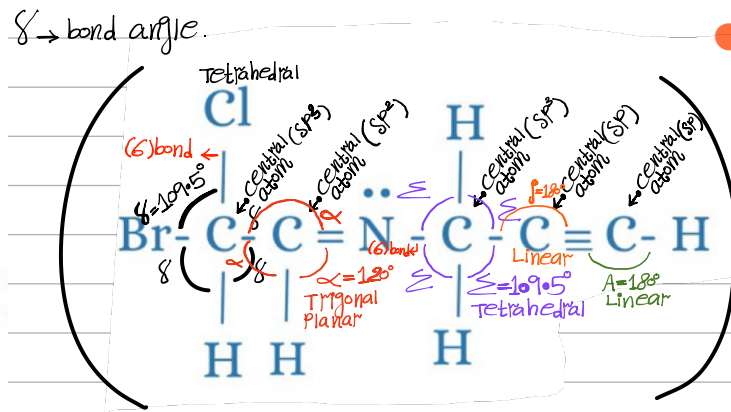 γ → bond angle.
Tetrahedral
Cl
H
(б) bond ←
γ=109.5°
central (SP³)
atom
central (SP²)
atom
central (SP³)
atom
central (SP)
atom
central (SP)
atom
Σ Σ
β=180°
γ α
Br - C - C = N - C - C ≡ C - H
(б) bond
γ α γ
α=120°
Trigonal
Planar
Σ Σ=109.5°
Tetrahedral
Linear
A=180°
Linear
H H H